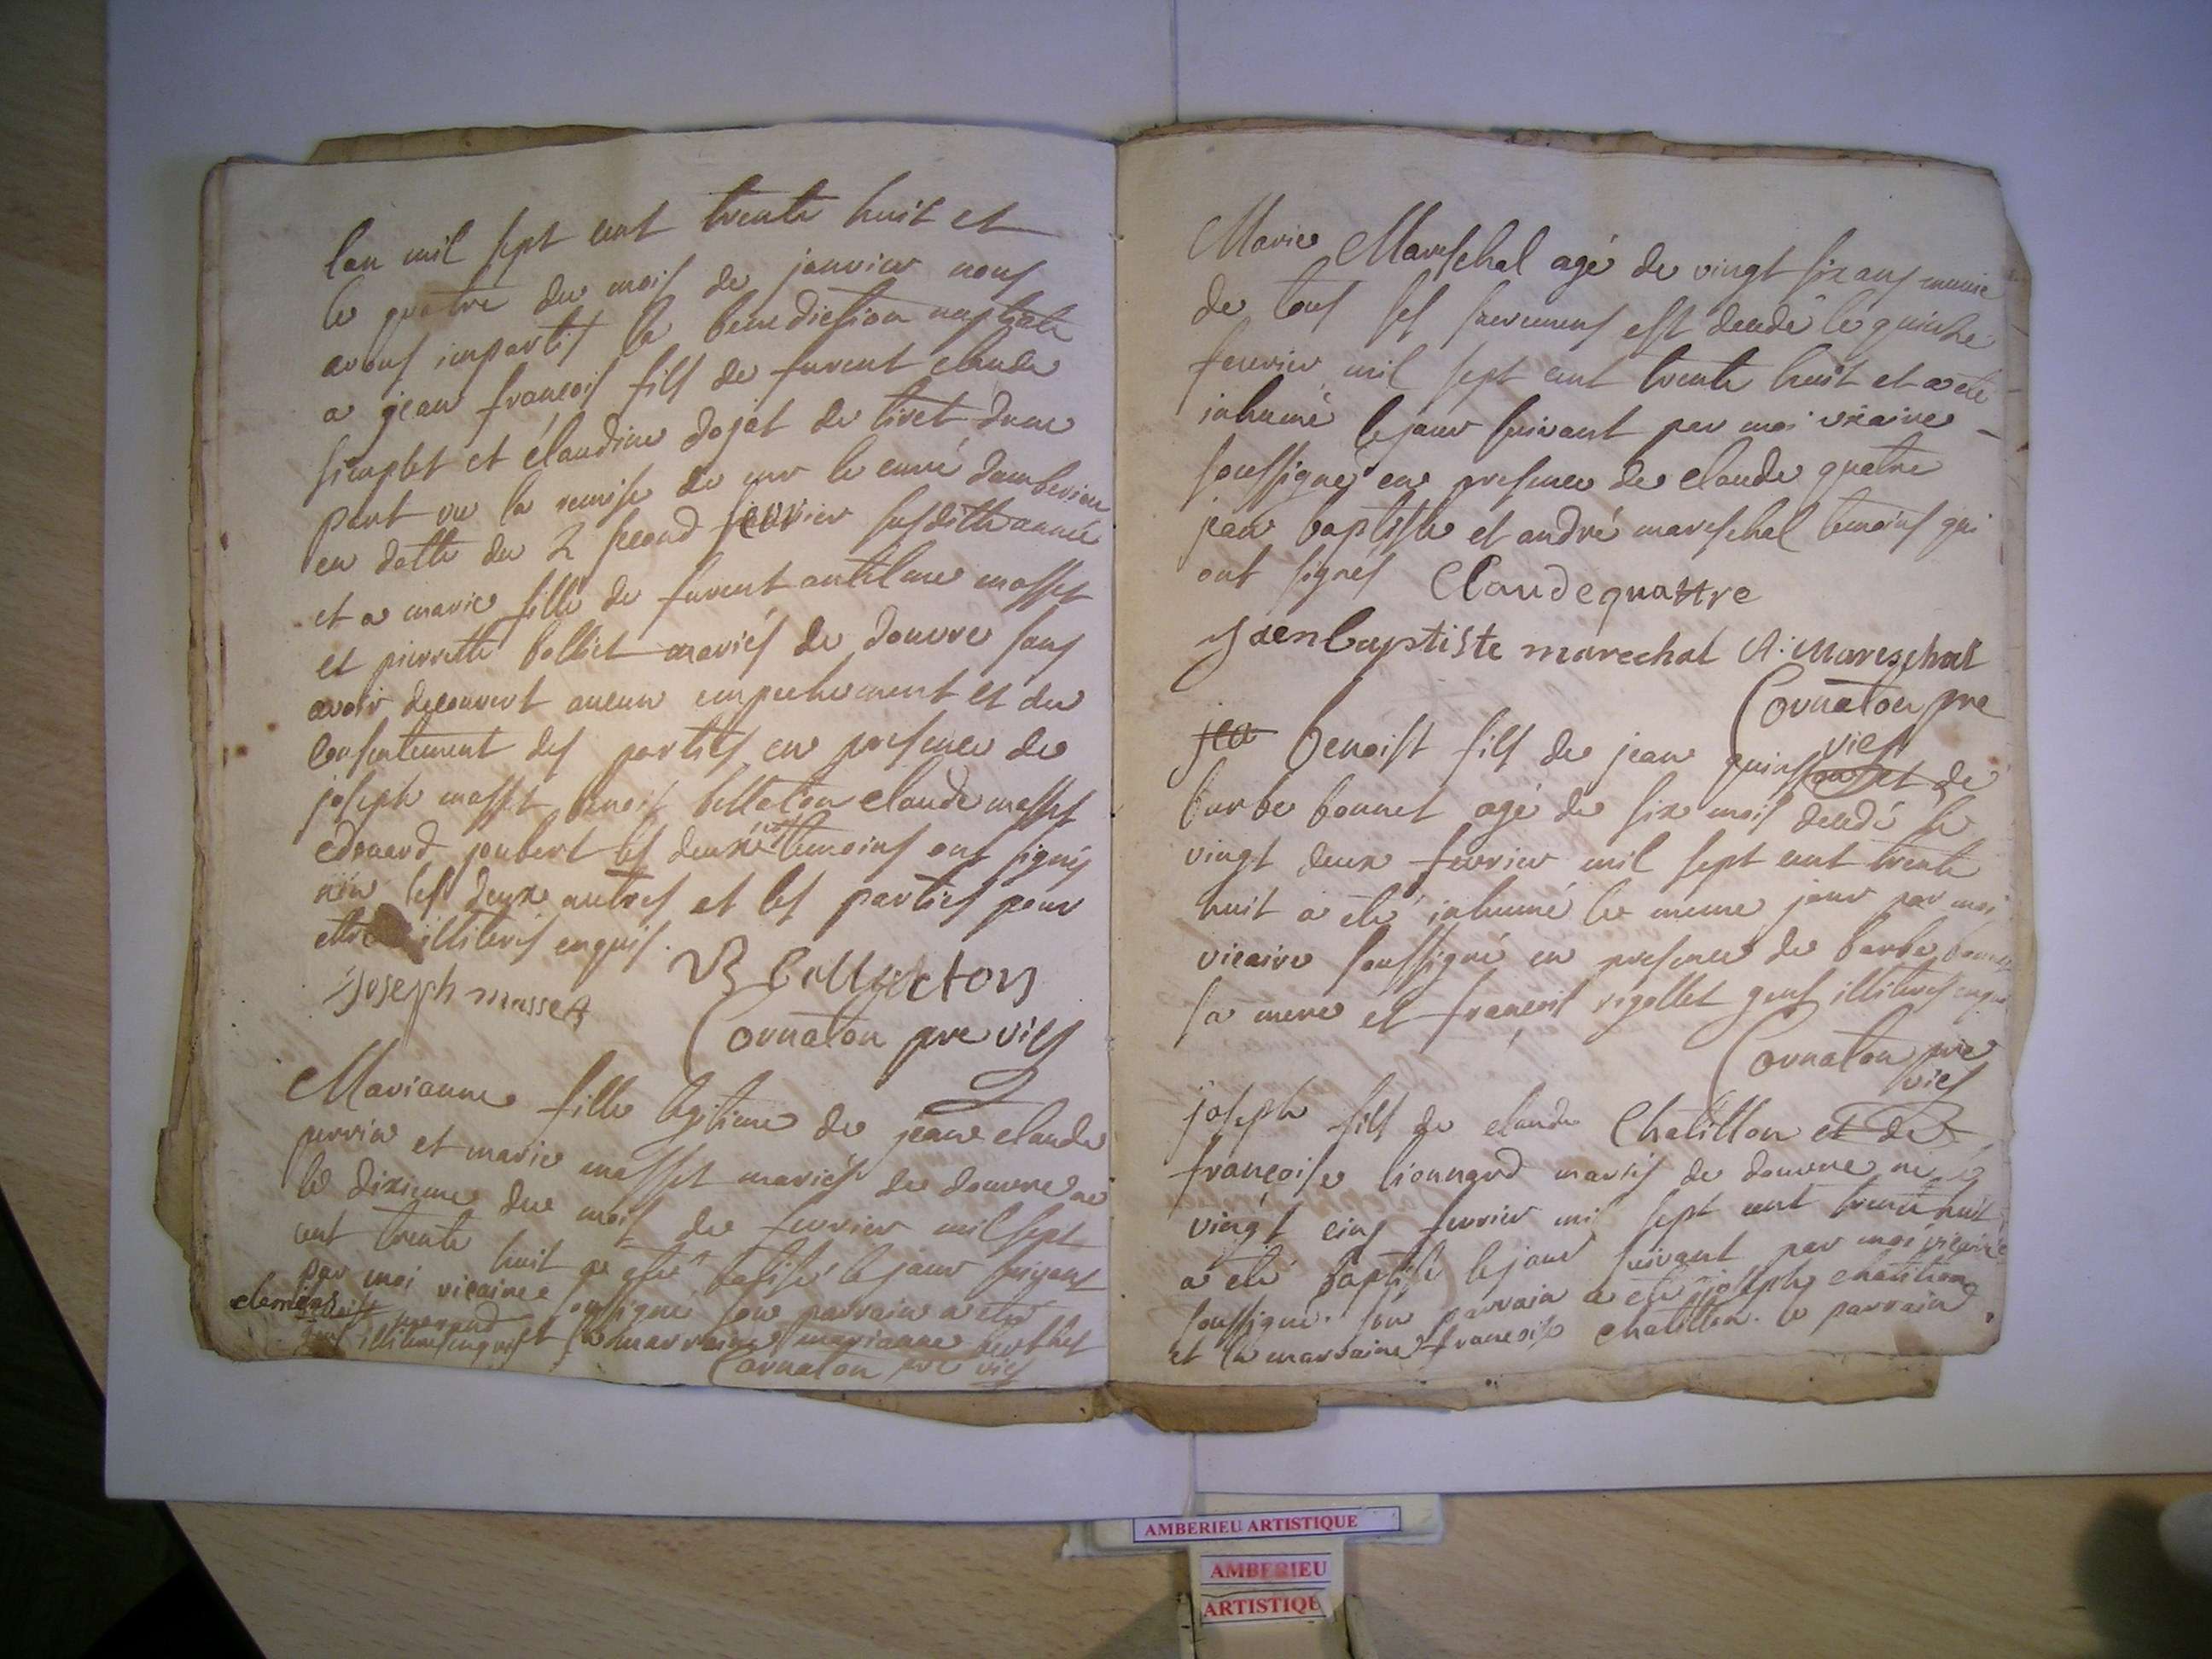 lan mil sept cent trente huit et
le quatre du mois de janvier nous
avons impartis la benediction nuptiale
a jean françois fils de furent claude
simplet et claudine dojat de tiret dune
part vu la remise de mr le curé damberieu
en datte du 2 second janvier susditte année
et a marie fille de furent antelme masset
et pierrette bolliet mariés de douvre sans
avoir decouvert aucun empechement et du
consentement des parties en presence de
joseph masset benoit belleton claude masset
edouard joubert les deux temoins ont signés
non les deux autres et les parties pour
etre illiterés enquis.
joseph masset
Cornaton pre vics
Marianne fille legitime de jean claude
perrin et marie masset mariés de douvre née
le dixieme du mois de fevrier mil sept
cent trente huit a eté batisé le jour suivant
par moi vicaire soussigné son parrain a eté
et la marraine marianne berthet
gens illiterés enquis
Cornaton pre vics
Marie Mareschal agé de vingt six ans munie
de tous ses sacremens est decedé le quinze
fevrier mil sept cent trente huit et a eté
inhumé le jour suivant par moi vicaire
soussigné en presence de claude quatre
jean baptiste et andré mareschal temoins qui
ont signés Claude quattre
Jaen Baptiste marechal A. Mareschal
Cornaton pre
vics
jea benoist fils de jean quinson et de
barbe bonnet agé de six mois decedé le
vingt deux fevrier mil sept cent trente
huit a eté inhumé le meme jour par moi
vicaire soussigné en presence de barbe bonnet
sa mere et françois rigollet gens illiterés enquis
Cornaton pre
vics
joseph fils de claude Chatillon et de
françoise lionnard mariés de douvre né le
vingt cinq fevrier mil sept cent trente huit
a eté baptisé le jour suivant par moi vicaire
soussigné. son parrain a eté joseph chatillon
et la marraine françoise chatillon. le parrain
AMBERIEU ARTISTIQUE
AMBERIEU
ARTISTIQUE